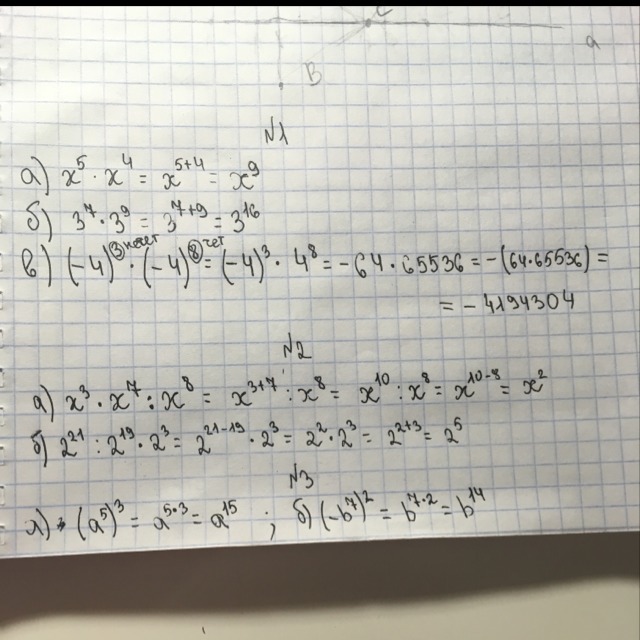 C
a
B
№1
а) x⁵ · x⁴ = x⁵⁺⁴ = x⁹
б) 3⁷ · 3⁹ = 3⁷⁺⁹ = 3¹⁶
в) (-4)³ нечет · (-4)⁸ чет = (-4)³ · 4⁸ = -64 · 65536 = -(64·65536) =
= -4194304
№2
а) x³ · x⁷ : x⁸ = x³⁺⁷ : x⁸ = x¹⁰ : x⁸ = x¹⁰⁻⁸ = x²
б) 2²¹ : 2¹⁹ · 2³ = 2²¹⁻¹⁹ · 2³ = 2² · 2³ = 2²⁺³ = 2⁵
№3
а) (a⁵)³ = a⁵·³ = a¹⁵ ; б) (-b⁷)² = b⁷·² = b¹⁴